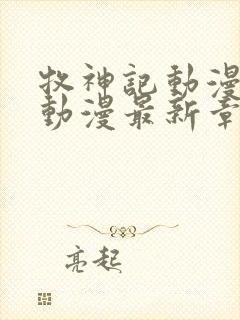 牧神記動漫
動漫最新章
亮起